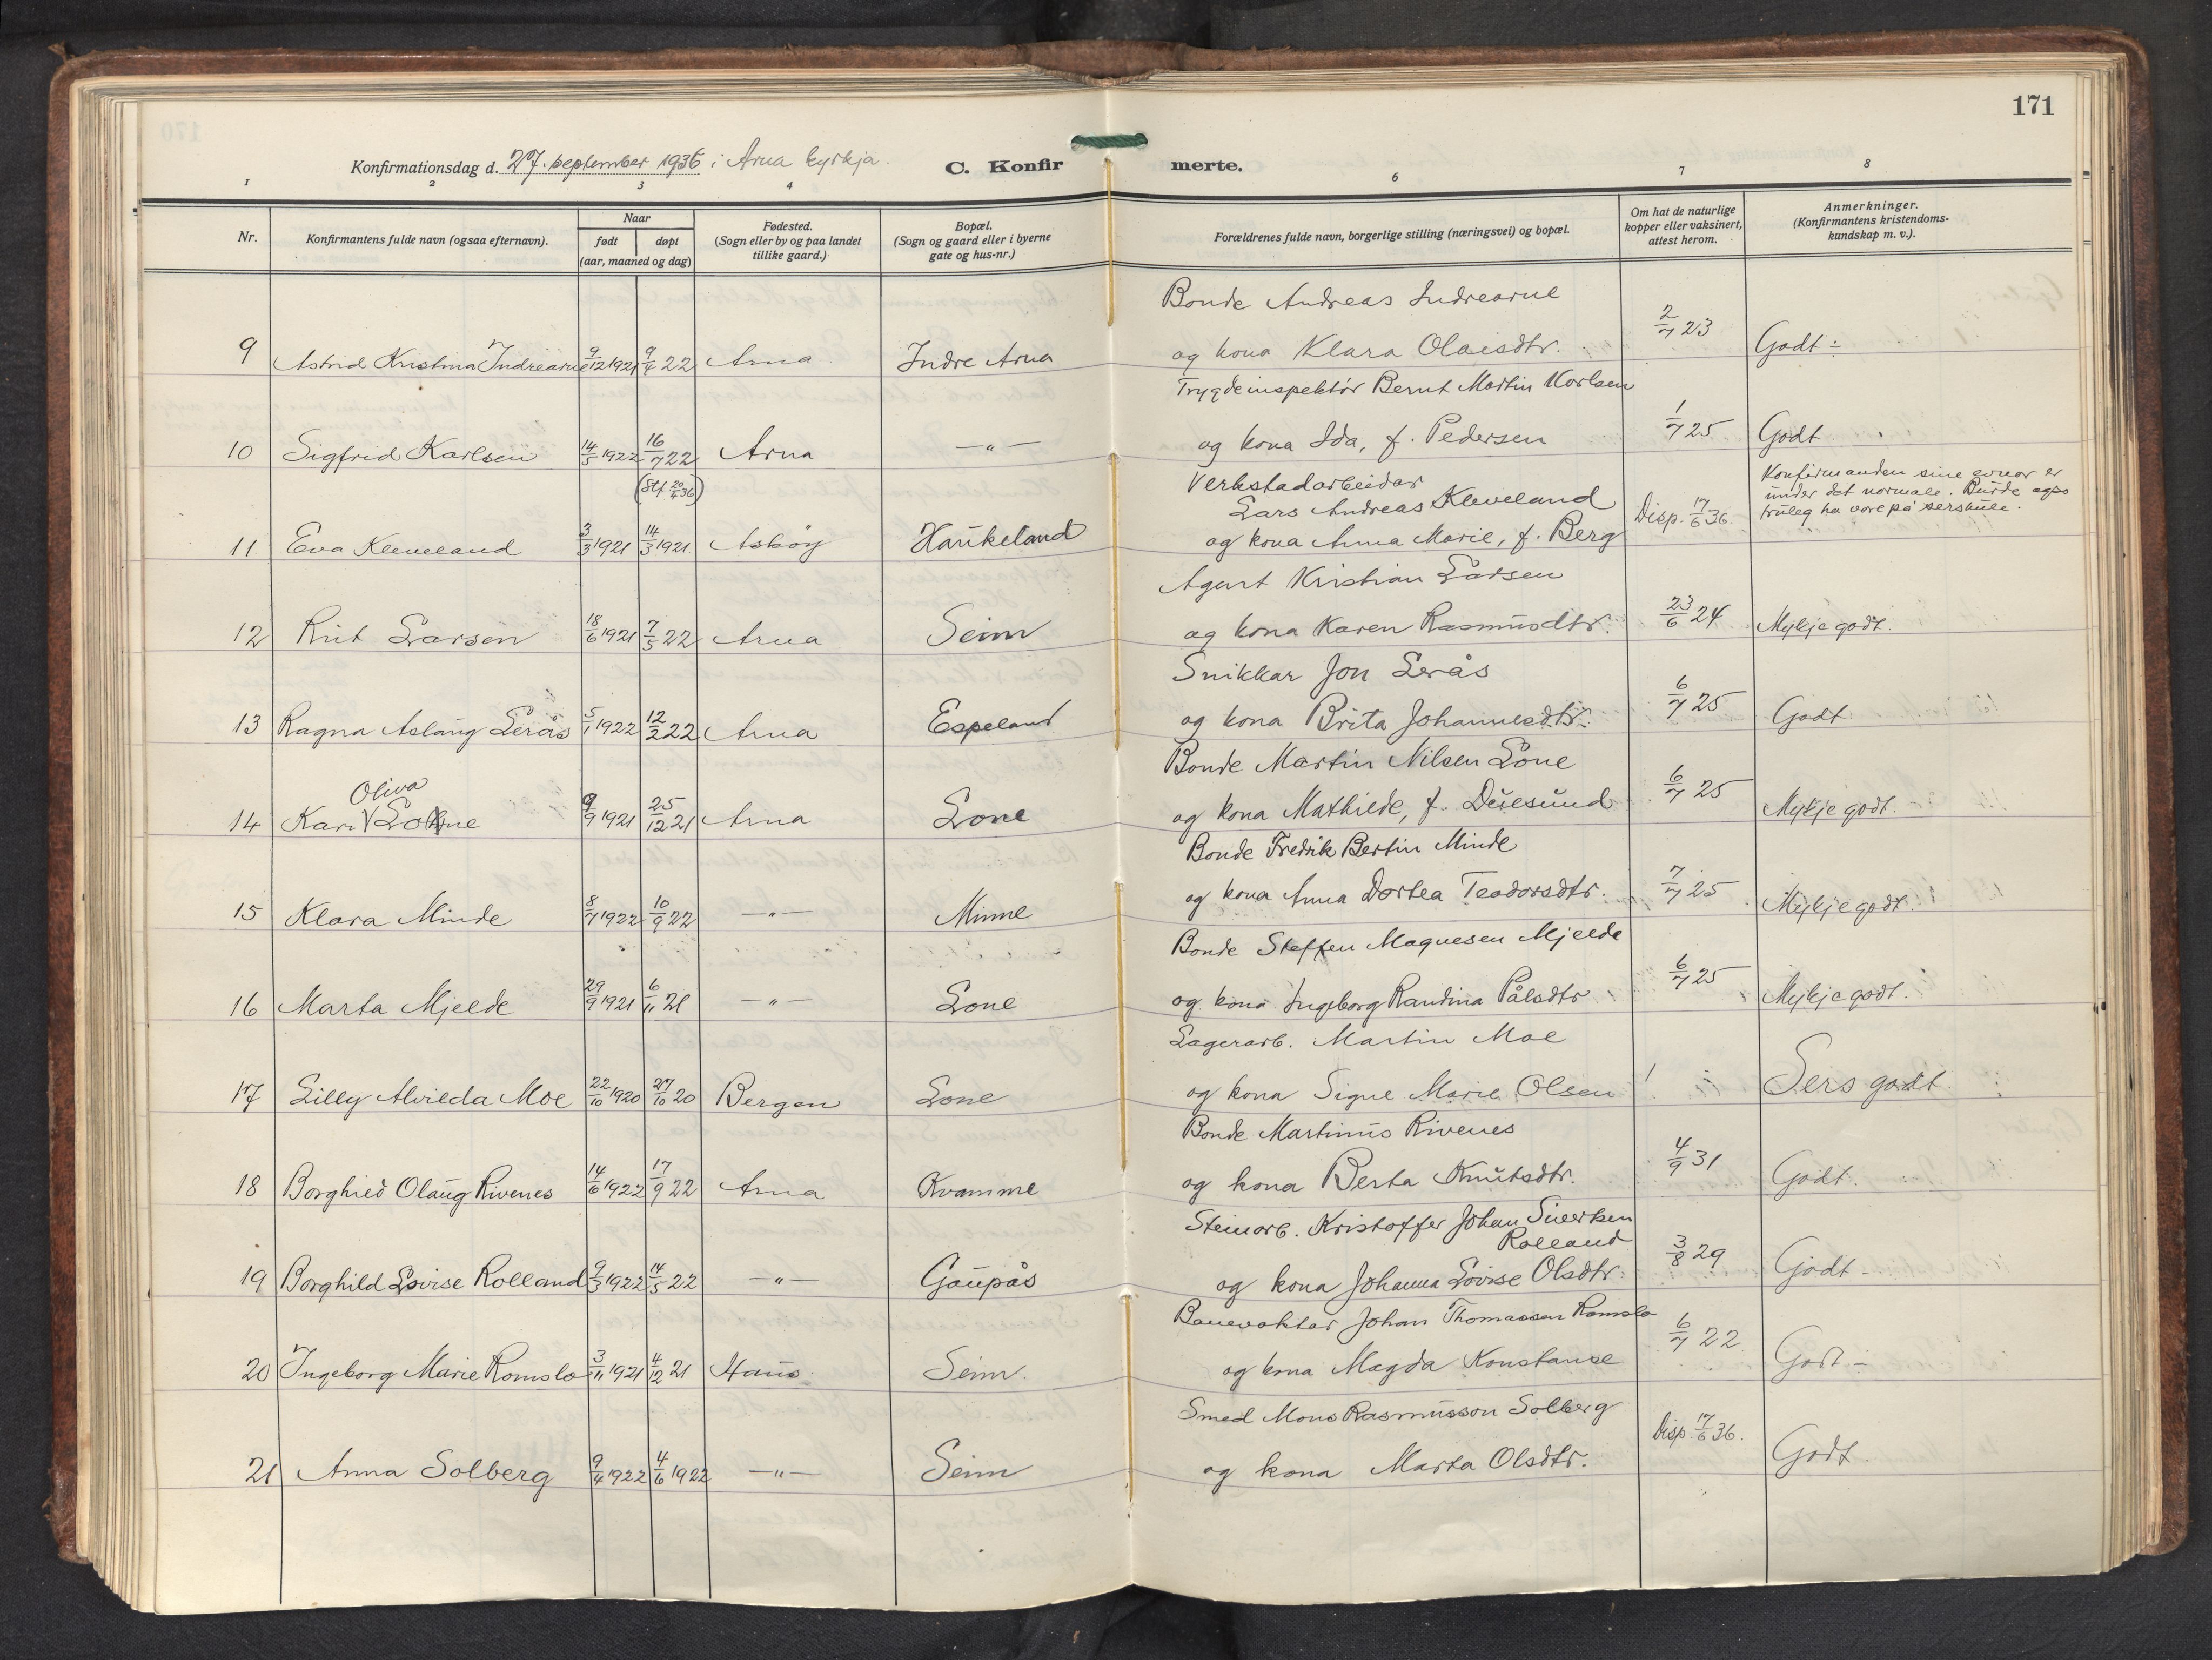 171
Konfirmationsdag d. 27. september 1936 i Arna kyrkja.
C. Konfirmerte.
1 2 3 4 6 7 8
Nr.
Konfirmantens fulde navn (ogsaa efternavn).
Naar
født døpt
(aar, maaned og dag)
Fødested.
(Sogn eller by og paa landet
tillike gaard.)
Bopæl.
(Sogn og gaard eller i byerne
gate og hus-nr.)
Forældrenes fulde navn, borgerlige stilling (næringsvei) og bopæl.
Om hat de naturlige
kopper eller vaksinert,
attest herom.
Anmerkninger.
(Konfirmantens kristendoms-
kundskap m. v.).
Bonde Andreas Indrearne
9 Astrid Kristina Indrearne 9/12 1921 9/4 22 Arna Indre Arna og kona Klara Olaisdtr. 2/7 23 Godt ÷
Trygdeinspektør Bernt Martin Karlsen
10 Sigfrid Karlsen 14/5 1922 16/7 22 Arna —"— og kona Ida, f. Pedersen 1/7 25 Godt.
(Stf 20/4 36)
Verkstadarbeidar
Lars Andreas Kleveland
11 Eva Kleveland 3/3 1921 14/3 1921 Askøy Haukeland og kona Anna Marie, f. Berg Disp. 17/6 36.
Konfirmanden sine evner er
under det normale. Burde også
truleg ha vore på serskule.
Agent Kristian Larsen
12 Rut Larsen 18/6 1921 7/5 22 Arna Seim og kona Karen Rasmusdtr. 23/6 24 Mykje godt.
Snikkar Jon Lerås
13 Ragna Aslaug Lerås 5/1 1922 12/2 22 Arna Espeland og kona Brita Johannesdtr. 6/7 25 Godt
Bonde Martin Nilsen Lone
Oliva
14 Kari V Lone 9/9 1921 25/12 21 Arna Lone og kona Mathilde, f. Duesund 6/7 25 Mykje godt.
Bonde Fredrik Bertin Minde
15 Klara Minde 8/7 1922 10/9 22 —"— Minne og kona Anna Dortea Teodorsdtr. 7/7 25 Mykje godt.
Bonde Steffen Magnesen Mjelde
16 Marta Mjelde 29/9 1921 6/11 21 —"— Lone og kona Ingeborg Randina Pålsdtr 6/7 25 Mykje godt.
Lagerarb. Martin Moe
17 Lilly Alvilda Moe 22/10 1920 27/10 20 Bergen Lone og kona Signe Marie Olsen ÷ Sers godt.
Bonde Martinus Rivenes
18 Borghild Olaug Rivenes 14/6 1922 17/9 22 Arna Kvamme og kona Berta Knutsdtr. 4/9 31 Godt.
Steinarb. Kristoffer Johan Siversen
Rolland
19 Borghild Lovise Rolland 9/3 1922 14/5 22 —"— Gaupås og kona Johanna Lovise Olsdtr. 3/8 29 Godt -
Banevaktar Johan Thomassen Romslo
20 Ingeborg Marie Romslo 3/11 1921 4/12 21 Haus Seim. og kona Magda Konstanse 6/7 22 Godt -
Smed Mons Rasmusson Solberg
21 Anna Solberg 9/4 1922 4/6 1922 —"— Seim og kona Marta Olsdtr. Disp. 17/6 36. Godt.